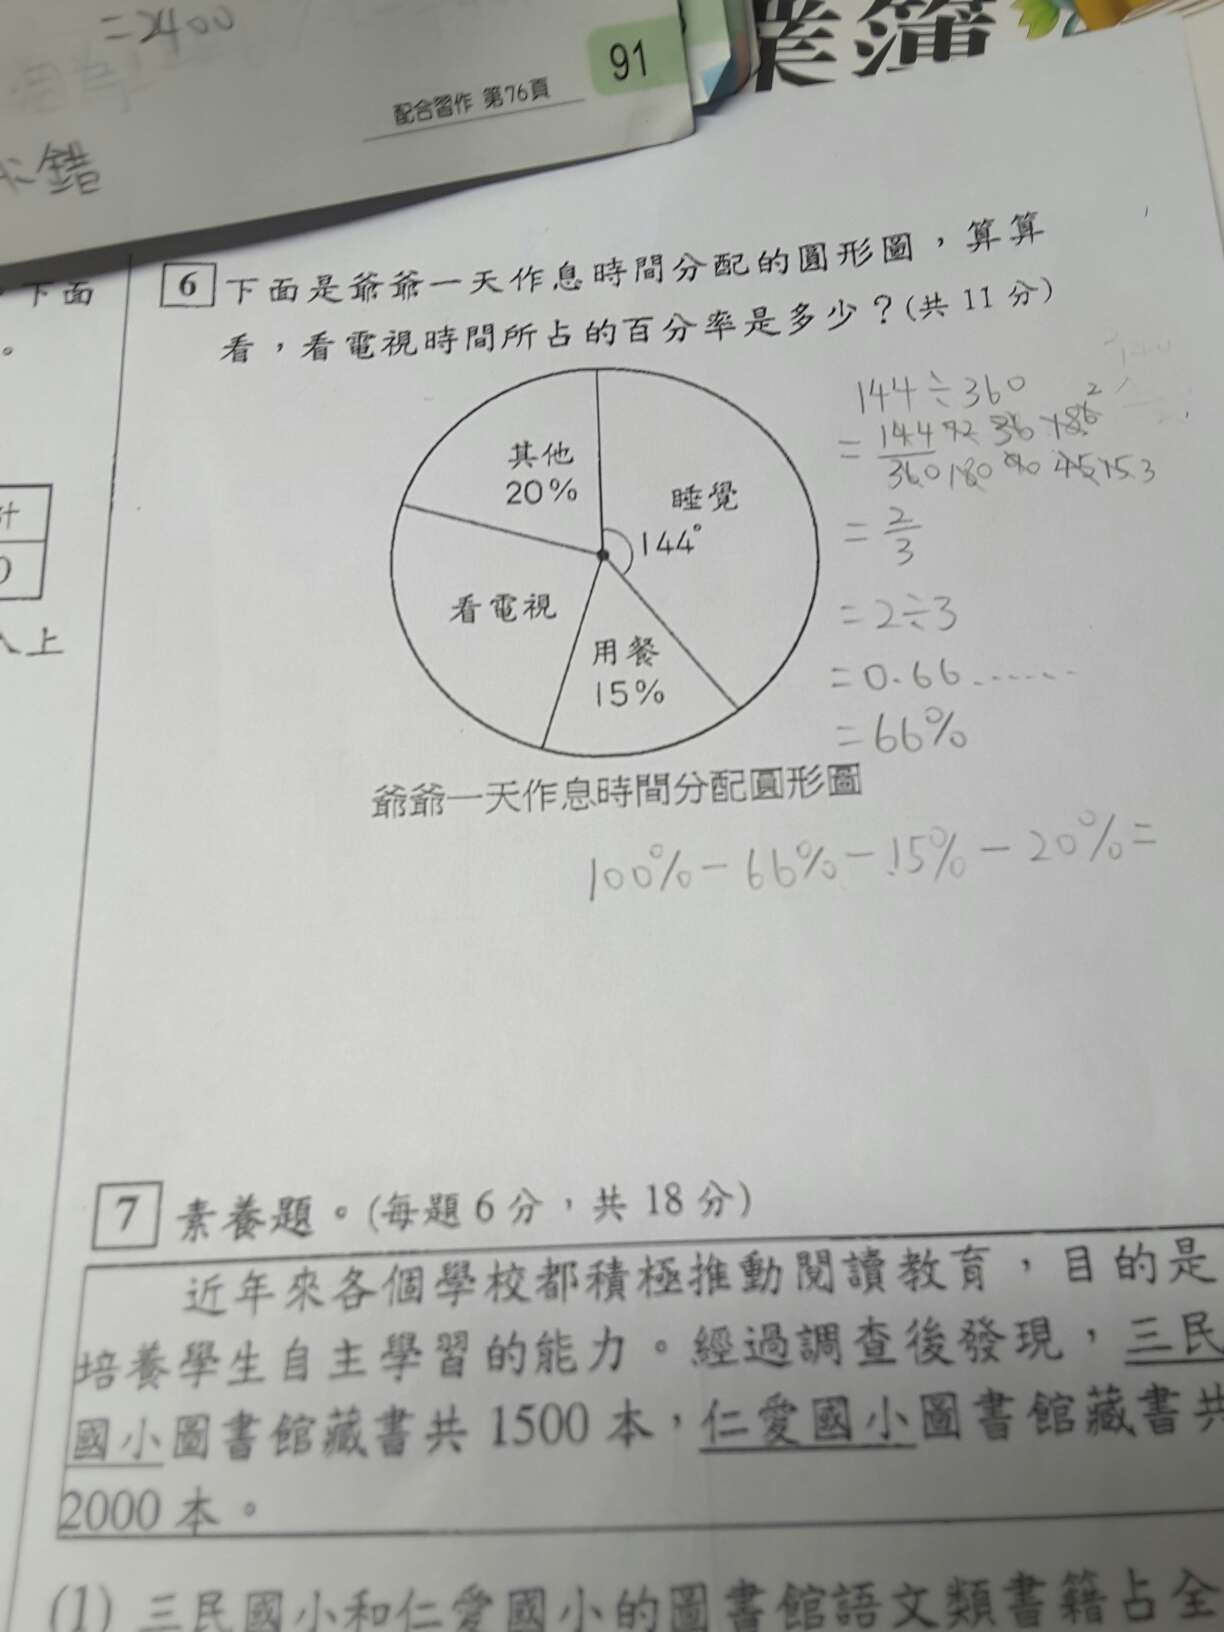 =2400
91
配合習作 第76頁
業簿
錯
下面
。
6 下面是爺爺一天作息時間分配的圓形圖，算算
看，看電視時間所占的百分率是多少？(共 11 分)
其他
20%
睡覺
144°
看電視
用餐
15%
爺爺一天作息時間分配圓形圖
144÷360
= 144 72 36 18
360 180 90 45 15 3
= 2/3
=2÷3
=0.66......
=66%
100%-66%-15%-20%=
計
人上
7 素養題。(每題 6 分，共 18 分)
近年來各個學校都積極推動閱讀教育，目的是
培養學生自主學習的能力。經過調查後發現，三民
國小圖書館藏書共 1500 本，仁愛國小圖書館藏書共
2000 本。
(1) 三民國小和仁愛國小的圖書館語文類書籍占全